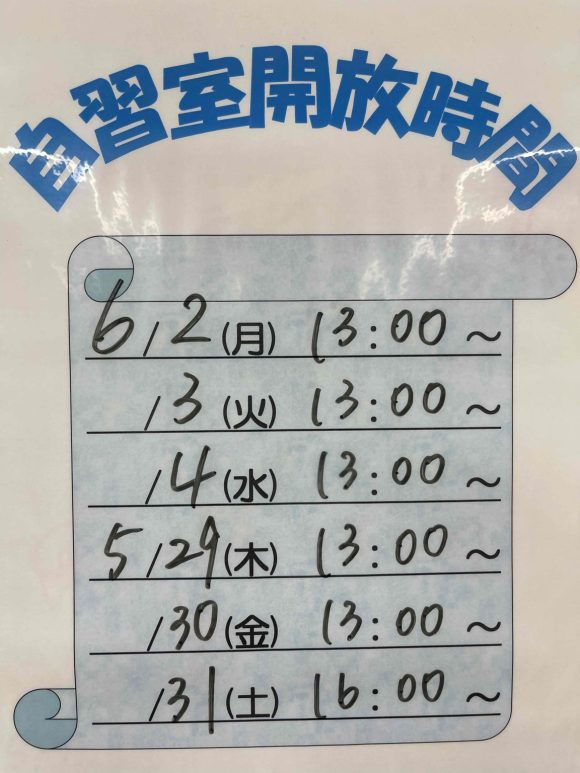 自習室開放時間
6/2(月) 13:00~
/3(火) 13:00~
/4(水) 13:00~
5/29(木) 13:00~
/30(金) 13:00~
/31(土) 16:00~